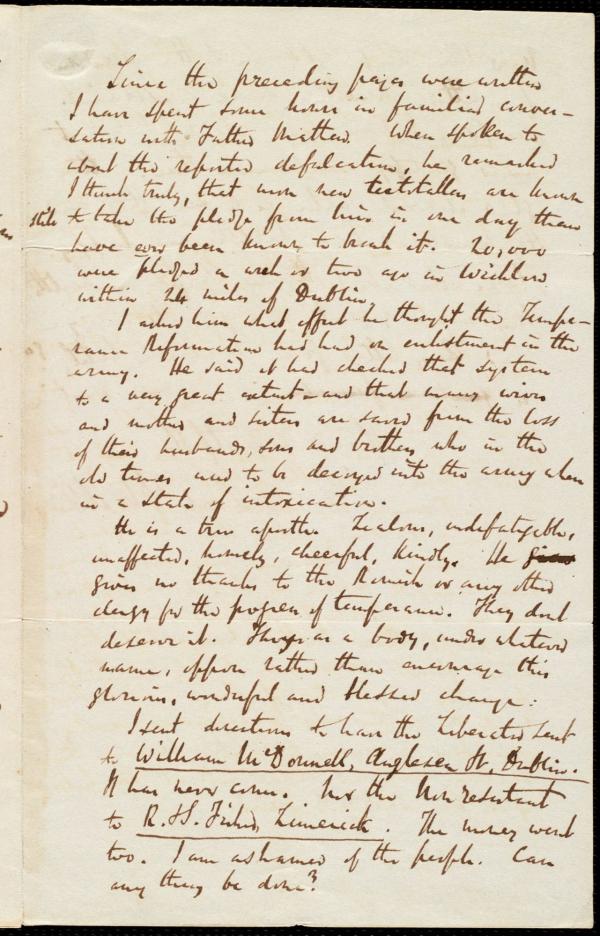 Since the preceding pages were written
I have spent some hours in familiar conver-
sation with Father Mathew. When spoken to
about the reported defalcations, he remarked
I think truly, that more new teetotallers are known
still to take the pledge from him in one day than
have ever been known to break it. 20,000
were pledged a week or two ago in Wicklow
within 24 miles of Dublin.
I asked him what effect he thought the Tempe-
rance Reformation had had on enlistment in the
army. He said it had checked that system
to a very great extent - and that many wives
and mothers and sisters are saved from the loss
of their husbands, sons and brothers, who in the
old times used to be decoyed into the army when
in a state of intoxication.
He is a true apostle. Zealous, indefatigable,
unaffected, homely, cheerful, kindly. He
gives no thanks to the Romish or any other
clergy for the progress of temperance. They dont
deserve it. They as a body, under whatever
name, oppose rather than encourage this
glorious, wonderful and blessed change.
I sent directions to have the Liberator sent
to William McDonnell, Anglesea St, Dublin.
It has never come. Nor the Non resistant
to R. Fisher Limerick. The money went
too. I am ashamed of the people. Can
any thing be done?